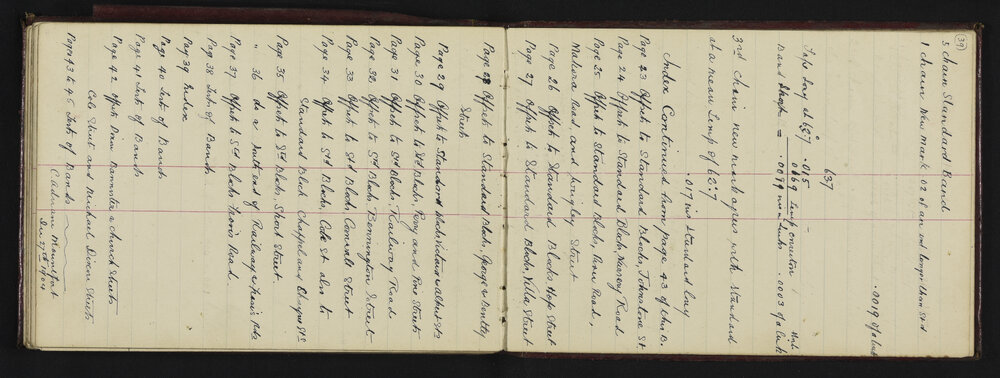 (39)
5 chain Standard Band
1 chain New Mark .02 of an inch longer than St'd.
.0019 of a link
Tape Long at 63°.7 .015
Band Short = .0099 min Links .0003 of a link
3rd chain new mark agrees with Standard
at a mean Temp of 62°.7
.017 ins Standard long
Index Continued from page 43 of this B.
Page 23 Offset to Standard Blocks, Johnstone St.
Page 24 Offset to Standard Blocks, Murray Road
Page 25 Offset to Standard Blocks, Road,
Makora Road, and Street
Page 26 Offset to Standard Blocks Hope Street
Page 27 Offset to Standard Blocks, Villa Street
Page 28 Offset to Standard Blocks, George & Bentley
Street
Page 29 Offset to Standard Block Victoria & Albert Sts
Page 30 Offset to Std Blocks, Percy and Pine Streets
Page 31 Offset to Std Blocks, Railway Road
Page 32 Offset to Std Blocks, Bennington Street
Page 33 Offset to Std Blocks, Consalt Street
Page 34 Offset to Std Blocks, Cole St also to
Standard Block Chappel and Cheyne Sts
Page 35 Offset to Std Blocks, Short Street
" 36 do a South end of Railway & Pts
Page 37 Offset to Std Blocks, Road
Page 38 Test of Band
Page 39 Index
Page 40 Test of Band
Page 41 Test of Bands
Page 42 Offset Bannister & Church Streets
Cole Street and Michael, Dixon Streets
Page 43 to 45 Test of Bands
C Adnam Mountfort
Dec 27th 1904